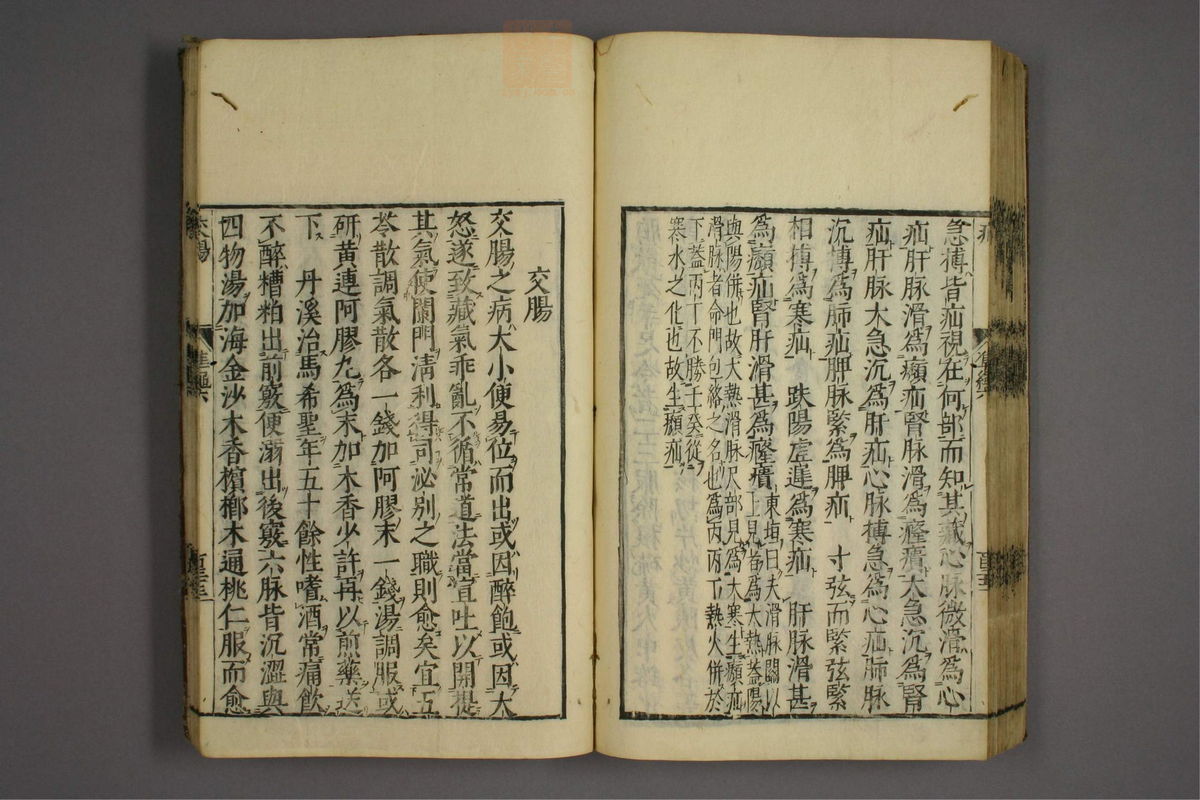 急搏皆疝視在何部而知其藏心脉微滑爲心
疝肝脉滑爲㿗疝腎脉滑爲癃㿗大急沉爲腎
疝肝脉大急沉爲肝疝心脉搏急爲心疝肺脉
沉搏爲肺疝脾脉緊爲脾疝 寸弦而緊弦緊
相搏爲寒疝 趺陽虛遲爲寒疝 肝脉滑甚
爲㿗疝腎肝滑甚爲癃㿗 東垣曰夫滑脉關以
上見者爲大熱蓋陽
與陽併也故大熱滑脉尺部見爲大寒生㿗疝
滑脉者命門包絡之名也爲丙丙丁熱火併於
下蓋丙丁不勝壬癸從
寒水之化也故生㿗疝
交腸
交腸之病大小便易位而出或因醉飽或因大
怒遂致藏氣乖亂不循常道法當宣吐以開提
其氣使闌門淸利得司泌別之職則愈矣宜五
苓散調氣散各一錢加阿膠末一錢湯調服或
研黄連阿膠丸爲末加木香少許再以煎藥送
下 丹溪治馬希聖年五十餘性嗜酒常痛飲
不醉糟粕出前竅便溺出後竅六脉皆沉澀與
四物湯加海金沙木香檳榔木通桃仁服而愈